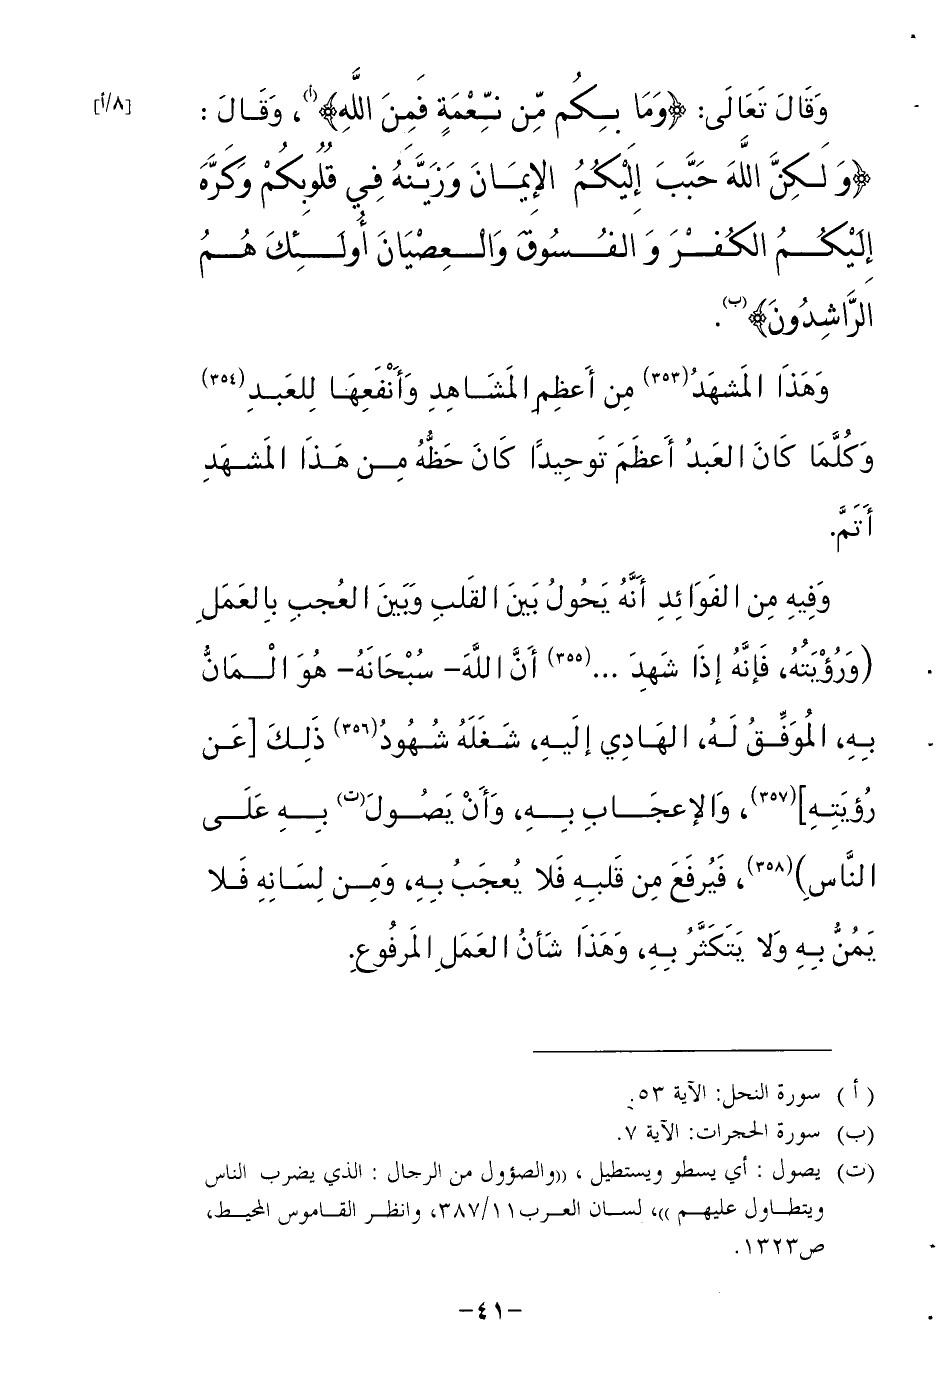 [٨/أ]
وَقَالَ تَعَالَى: ﴿وَمَا بِكُم مِّن نِّعْمَةٍ فَمِنَ اللَّهِ﴾(أ)، وَقَالَ :
﴿وَلَكِنَّ اللَّهَ حَبَّبَ إِلَيْكُمُ الإِيمَانَ وَزَيَّنَهُ فِي قُلُوبِكُمْ وَكَرَّهَ
إِلَيْكُمُ الكُفْرَ وَالفُسُوقَ وَالعِصْيَانَ أُولَئِكَ هُمُ
الرَّاشِدُونَ﴾(ب).
وَهَذَا المَشهَدُ(٣٥٣) مِن أَعظَمِ المَشَاهِدِ وَأَنْفَعِهَا لِلعَبدِ(٣٥٤)
وَكُلَّمَا كَانَ العَبدُ أَعظَمَ تَوحِيدًا كَانَ حَظُّهُ مِن هَذَا المَشهَدِ
أَتَمَّ.
وَفِيهِ مِن الفَوَائِدِ أَنَّهُ يَحُولُ بَينَ القَلبِ وَبَينَ العُجبِ بِالعَمَلِ
(وَرُؤْيَتُهُ، فَإِنَّهُ إِذَا شَهِدَ ...(٣٥٥) أَنَّ اللهَ- سُبْحَانَهُ- هُوَ الْمَانُّ
بِهِ، المُوَفِّقُ لَهُ، الهَادِي إِلَيهِ، شَغَلَهُ شُهُودُ(٣٥٦) ذَلِكَ [عَن
رُؤيَتِهِ](٣٥٧)، وَالإِعجَابِ بِهِ، وَأَنْ يَصُولَ(ت) بِهِ عَلَى
النَّاسِ)(٣٥٨)، فَيُرفَعَ مِن قَلبِهِ فَلا يُعجَبُ بِهِ، وَمِن لِسَانِهِ فَلا
يَمُنُّ بِهِ وَلا يَتَكَثَّرُ بِهِ، وَهَذَا شَأنُ العَمَلِ المَرفُوعِ.
(أ) سورة النحل: الآية ٥٣.
(ب) سورة الحجرات: الآية ٧.
(ت) يصول : أي يسطو ويستطيل ، ((والصؤول من الرجال : الذي يضرب الناس
ويتطاول عليهم ))، لسان العرب٣٨٧/١١، وانظر القاموس المحيط،
ص١٣٢٣.
-٤١-